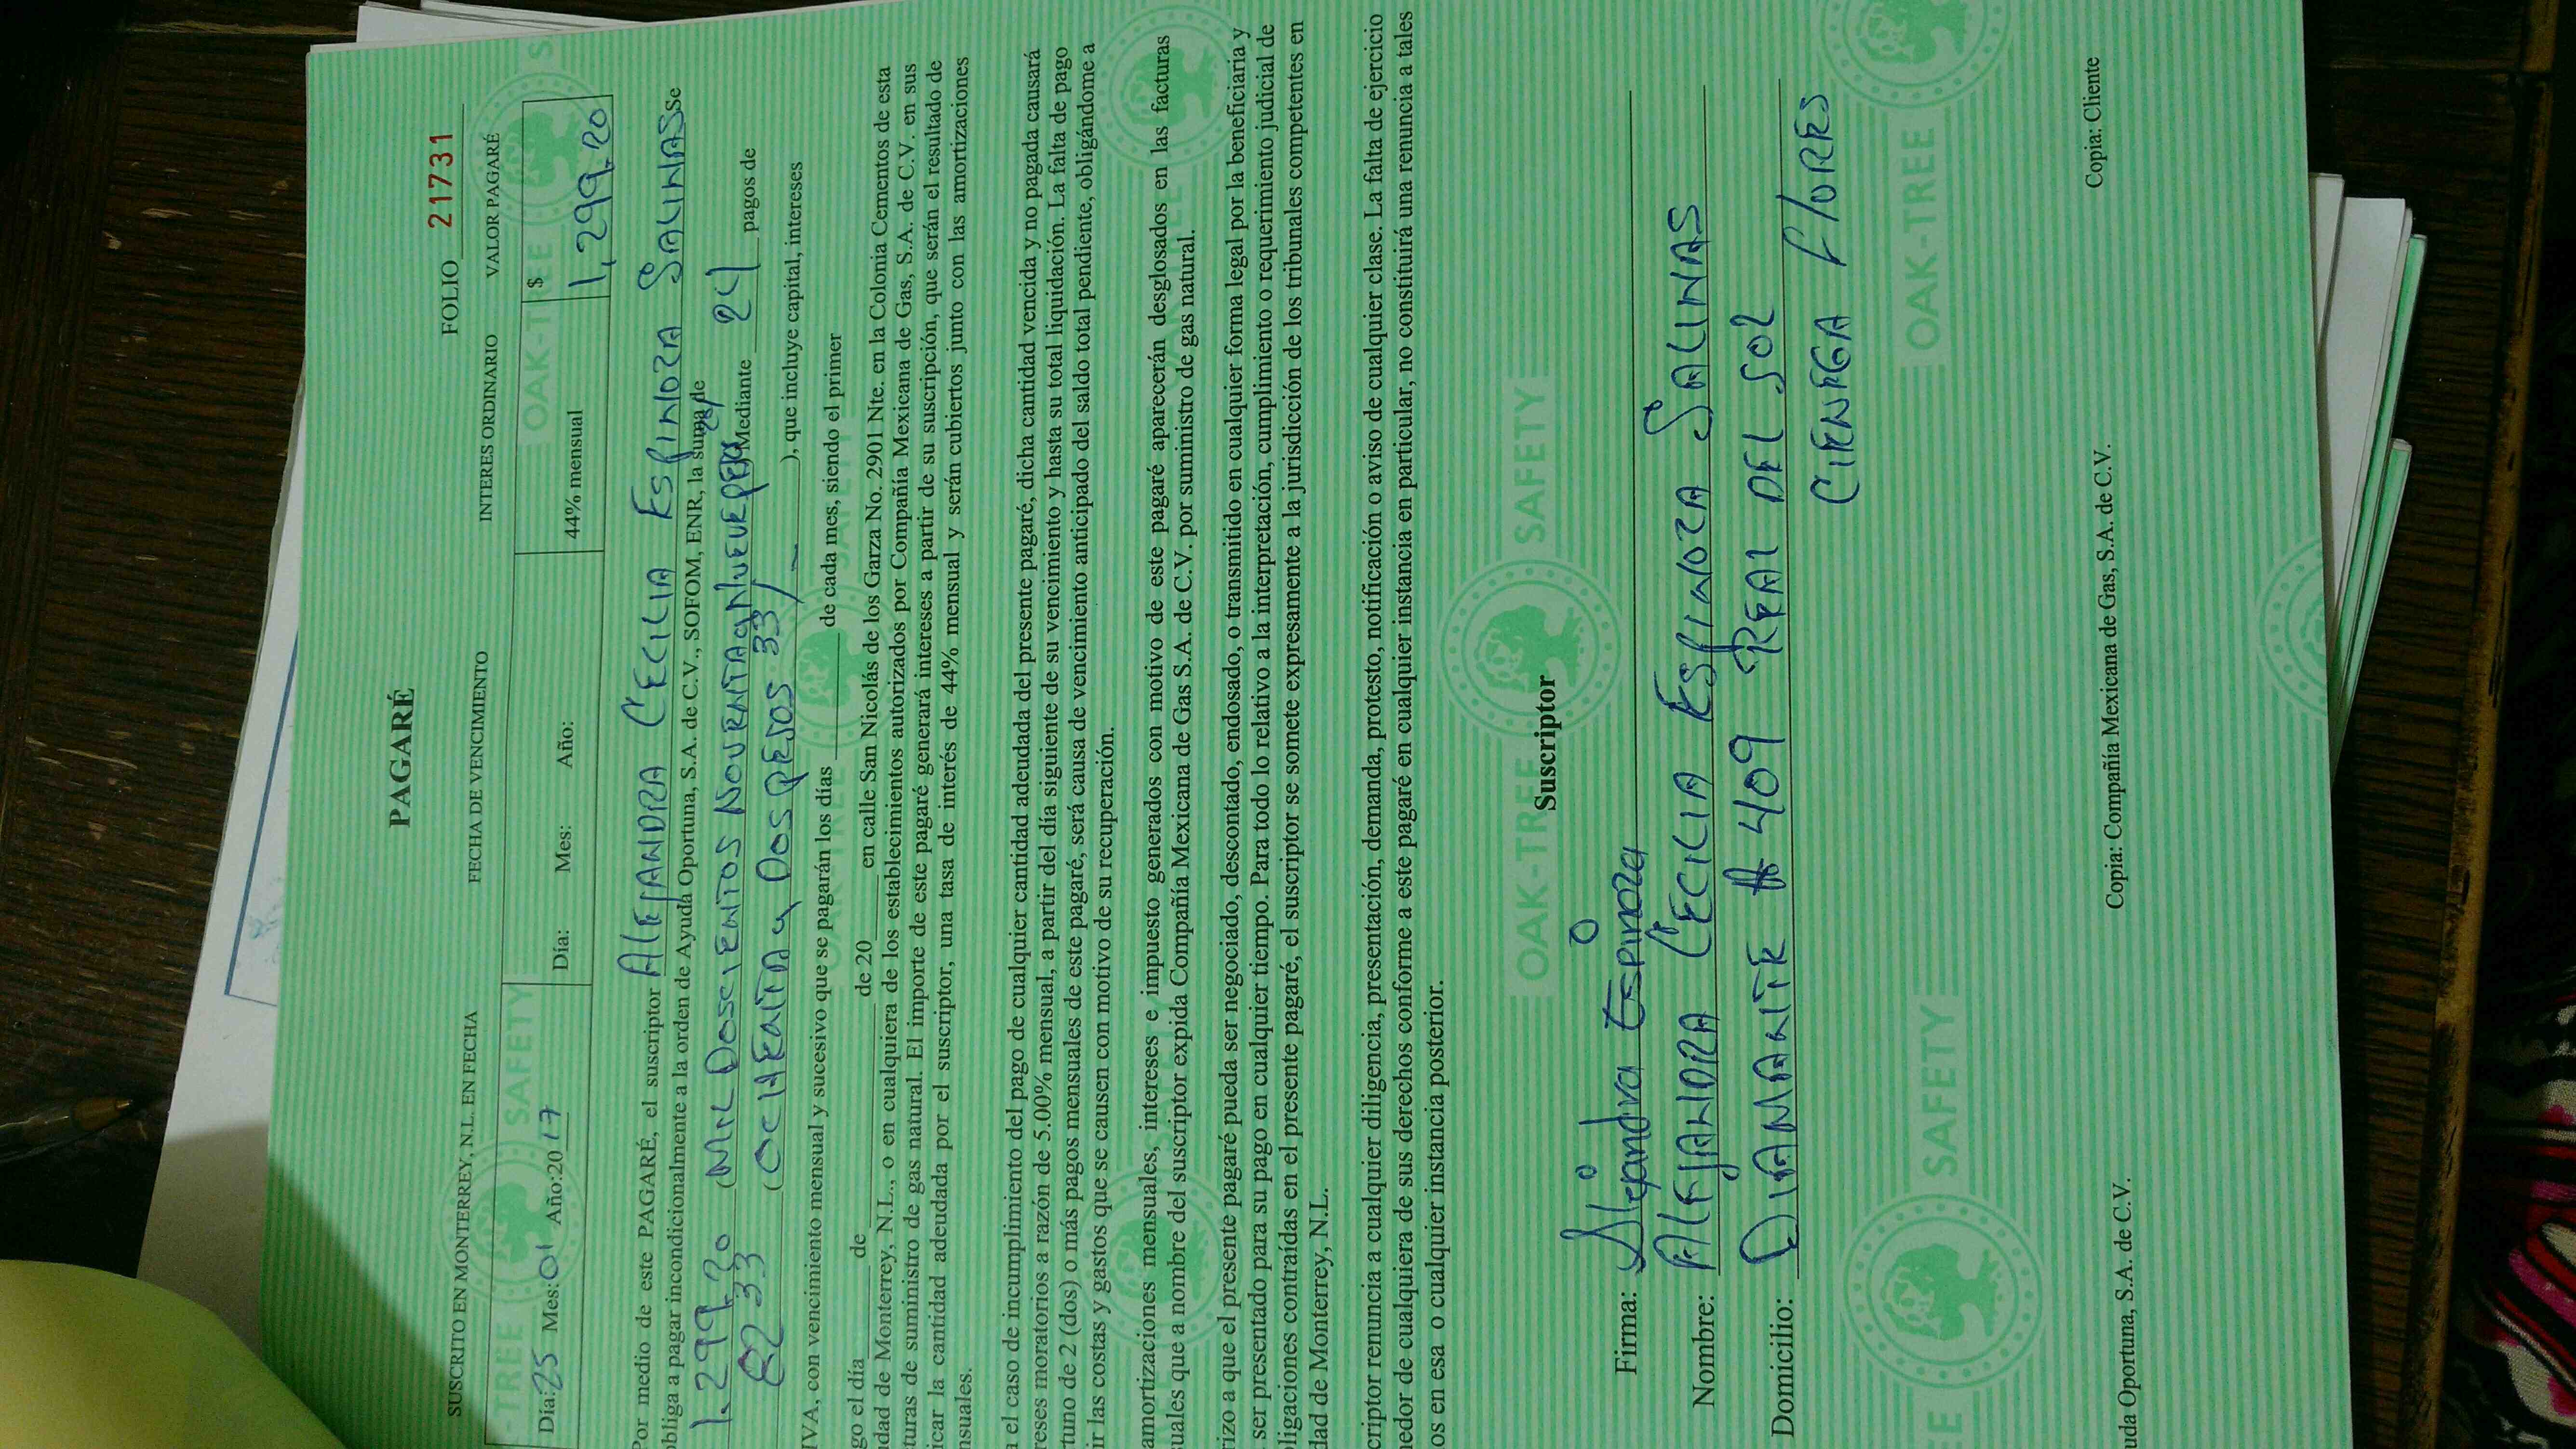 PAGARÉ
FOLIO 21731
SUSCRITO EN MONTERREY, N.L. EN FECHA FECHA DE VENCIMIENTO INTERES ORDINARIO VALOR PAGARÉ
Día: 25 Mes: 01 Año:2017 Día: Mes: Año: 44% mensual $ 1,299.20
Por medio de este PAGARÉ, el suscriptor AlEJANDRA CECILIA ESPINOZA SALINAS Se
obliga a pagar incondicionalmente a la orden de Ayuda Oportuna, S.A. de C.V., SOFOM, ENR, la suma de
1,299.20 (MIL DOSCIENTOS NOVENTA y NUEVE PESOS Mediante 24 pagos de
82.33 (OCHENTA y DOS PESOS 33/ ), que incluye capital, intereses
IVA, con vencimiento mensual y sucesivo que se pagarán los días de cada mes, siendo el primer
go el día de de 20 en calle San Nicolás de los Garza No. 2901 Nte. en la Colonia Cementos de esta
dad de Monterrey, N.L., o en cualquiera de los establecimientos autorizados por Compañía Mexicana de Gas, S.A. de C.V. en sus
turas de suministro de gas natural. El importe de este pagaré generará intereses a partir de su suscripción, que serán el resultado de
icar la cantidad adeudada por el suscriptor, una tasa de interés de 44% mensual y serán cubiertos junto con las amortizaciones
nsuales.
n el caso de incumplimiento del pago de cualquier cantidad adeudada del presente pagaré, dicha cantidad vencida y no pagada causará
reses moratorios a razón de 5.00% mensual, a partir del día siguiente de su vencimiento y hasta su total liquidación. La falta de pago
rtuno de 2 (dos) o más pagos mensuales de este pagaré, será causa de vencimiento anticipado del saldo total pendiente, obligándome a
ir las costas y gastos que se causen con motivo de su recuperación.
amortizaciones mensuales, intereses e impuesto generados con motivo de este pagaré aparecerán desglosados en las facturas
suales que a nombre del suscriptor expida Compañía Mexicana de Gas S.A. de C.V. por suministro de gas natural.
rizo a que el presente pagaré pueda ser negociado, descontado, endosado, o transmitido en cualquier forma legal por la beneficiaria y
ser presentado para su pago en cualquier tiempo. Para todo lo relativo a la interpretación, cumplimiento o requerimiento judicial de
bligaciones contraídas en el presente pagaré, el suscriptor se somete expresamente a la jurisdicción de los tribunales competentes en
dad de Monterrey, N.L.
criptor renuncia a cualquier diligencia, presentación, demanda, protesto, notificación o aviso de cualquier clase. La falta de ejercicio
nedor de cualquiera de sus derechos conforme a este pagaré en cualquier instancia en particular, no constituirá una renuncia a tales
os en esa o cualquier instancia posterior.
Suscriptor
Firma: Alejandra Espinoza
Nombre: AlEJANDRA CECILIA ESPINOZA SALINAS
Domicilio: DIAMANTE # 409 REAL DEL SOL
CIENEGA FlORES
uda Oportuna, S.A. de C.V. Copia: Compañía Mexicana de Gas, S.A. de C.V. Copia: Cliente
OAK-TREE SAFETY